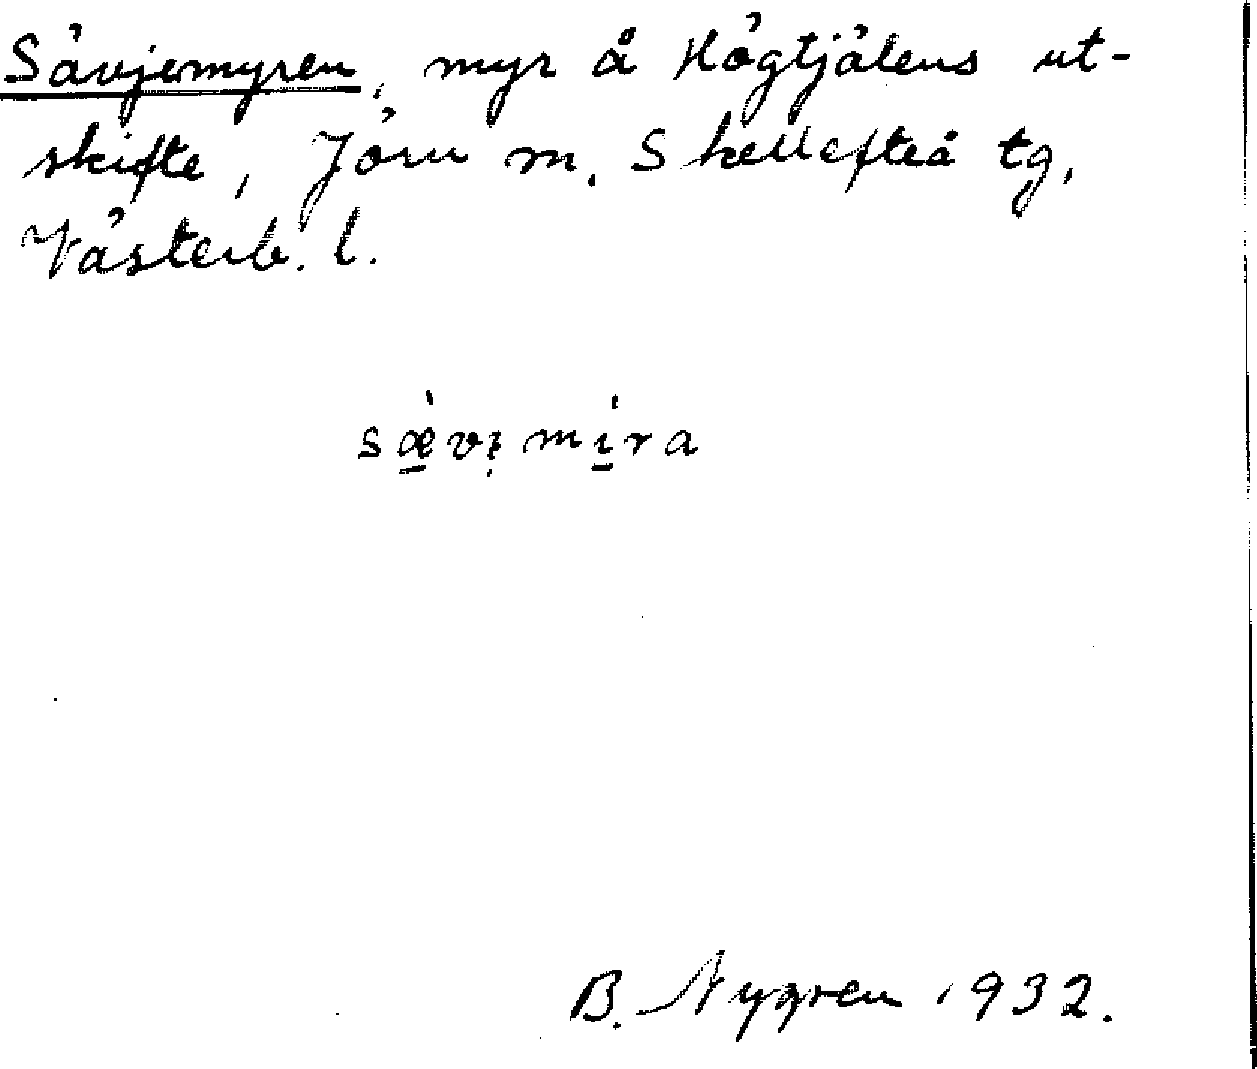 Sävjemyren, myr å Högtjälens ut-
skifte, Jörn m. Skellefteå tg,
Västerb. l.
sæ̀vi̩mìra
B. Nygren 1932.